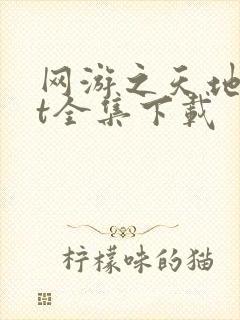 网游之天地
t全集下载
柠檬味的猫